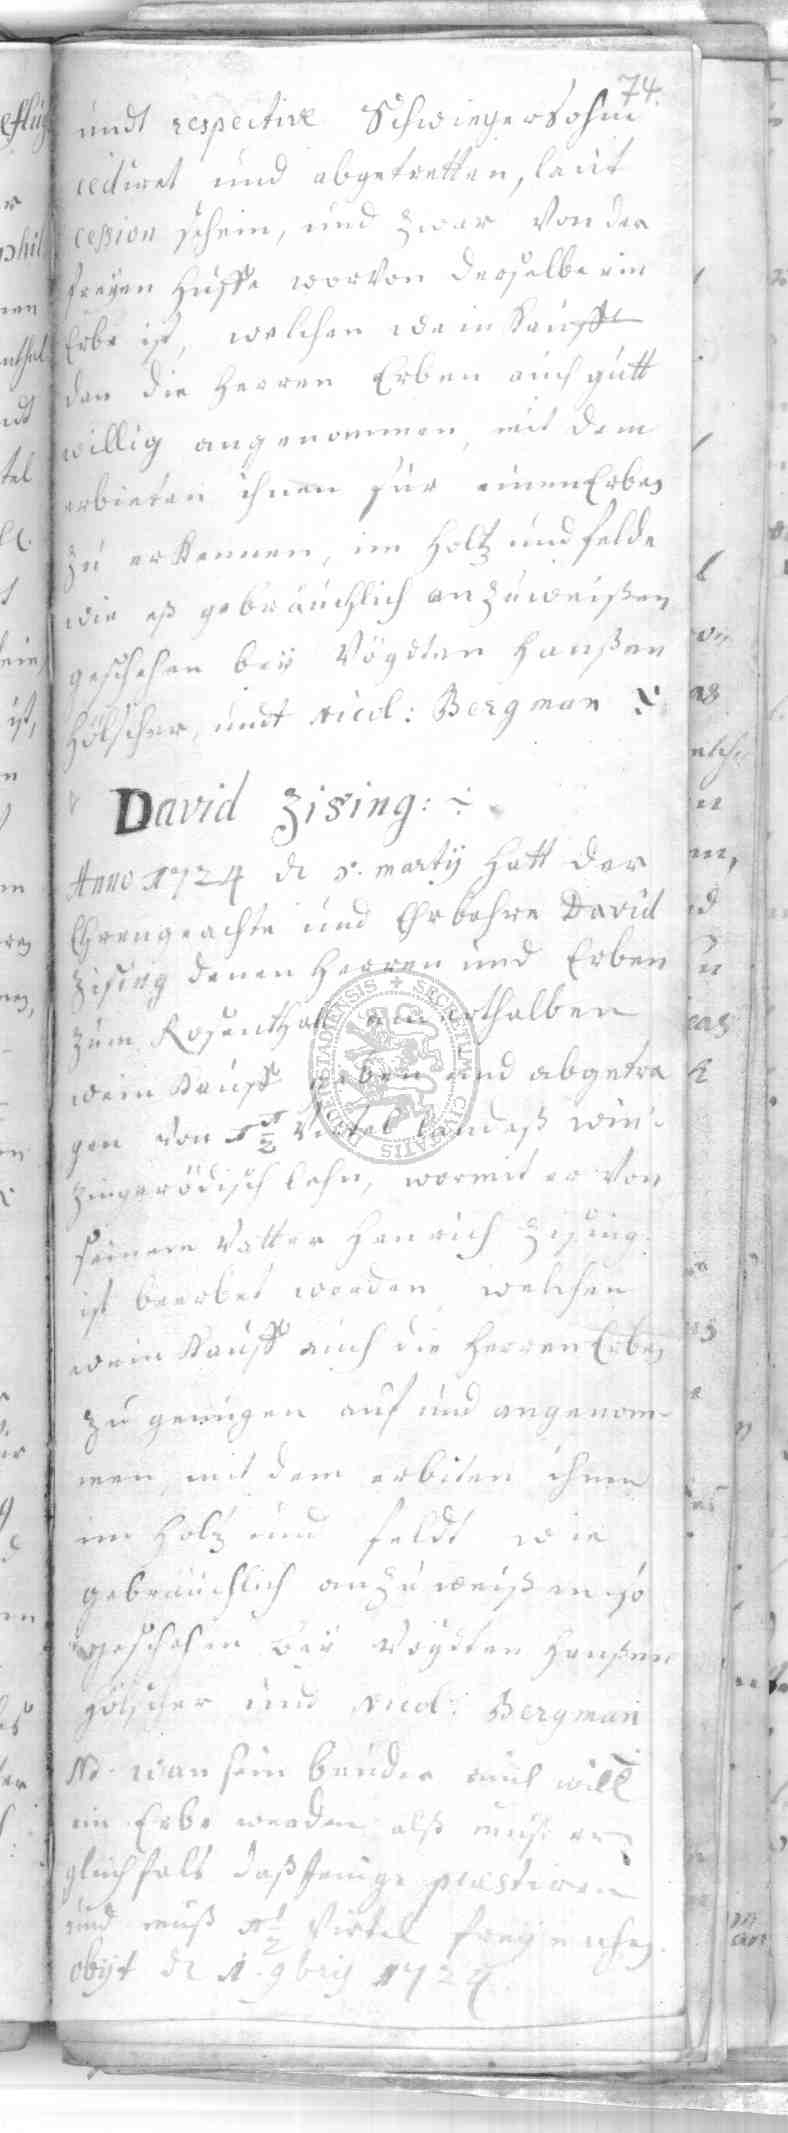 74.
undt respective Schwiegersohn
cediret und abgetretten, laut
cession schein, und zwar von der
freyen Huffe worvon derselbe ein
Erbe ist, welchen weinkauff
den die Herren Erben auch gutt
willig angenommen, mit dem
erbieten ihnen für einen Erben
zu erkennen, im Holtz und felde
wie eß gebräuchlich anzuweißen
geschehen beÿ Vögdten Hanßen
Hölscher, undt Nicol: Bergman
David Zising:
Anno 1724 d 5. martij Hatt der
Ehrengeachte und Ehrbahre David
Zising denen Herren und Erben
zum Rosenthall anderthalben
weinkauff geben und abgetra
gen von 1 1/2 Virtel landeß win
zingerödisch lehn, wormit er von
seinem Vatter Henrich Zising
ist beerbet worden welchen
weinkauff auch die Herren Erben
zu genügen auf und angenom-
men, mit dem erbiten ihme
im Holtz und feldt wie
gebräuchlich anzuweißen so
geschehen beÿ Vögdten Hanßen
Hölscher und Nicol: Bergman
NB. wan sein bruder auch will
ein Erbe werden alß muß er
gleichfals daßjenige præstiren
und muß 1 1/2 Virtel freyen
obijt d 1. 9bris 1724.
SECRETUM CIVITATIS